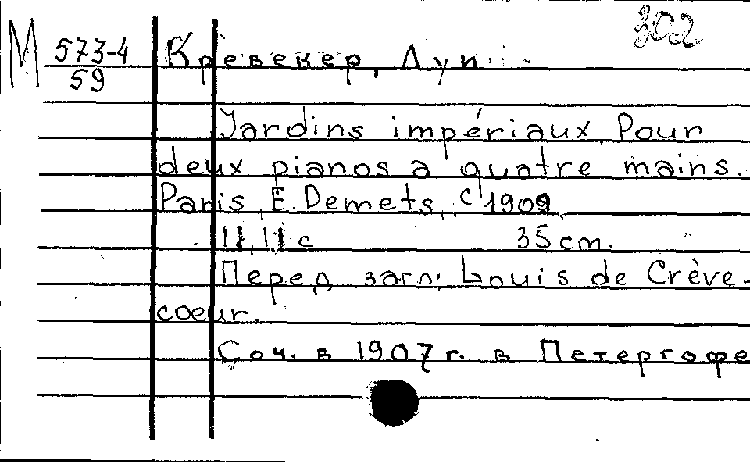 302
М 573-4
59
Кревекер, Луи
Jardins impériaux. Pour
deux pianos a quatre mains.
Paris, E. Demets, c 1909
11, 11 с 35 cm.
Перед загл: Louis de Crève-
coeur.
Соч. в 1907 г. в Петергофе